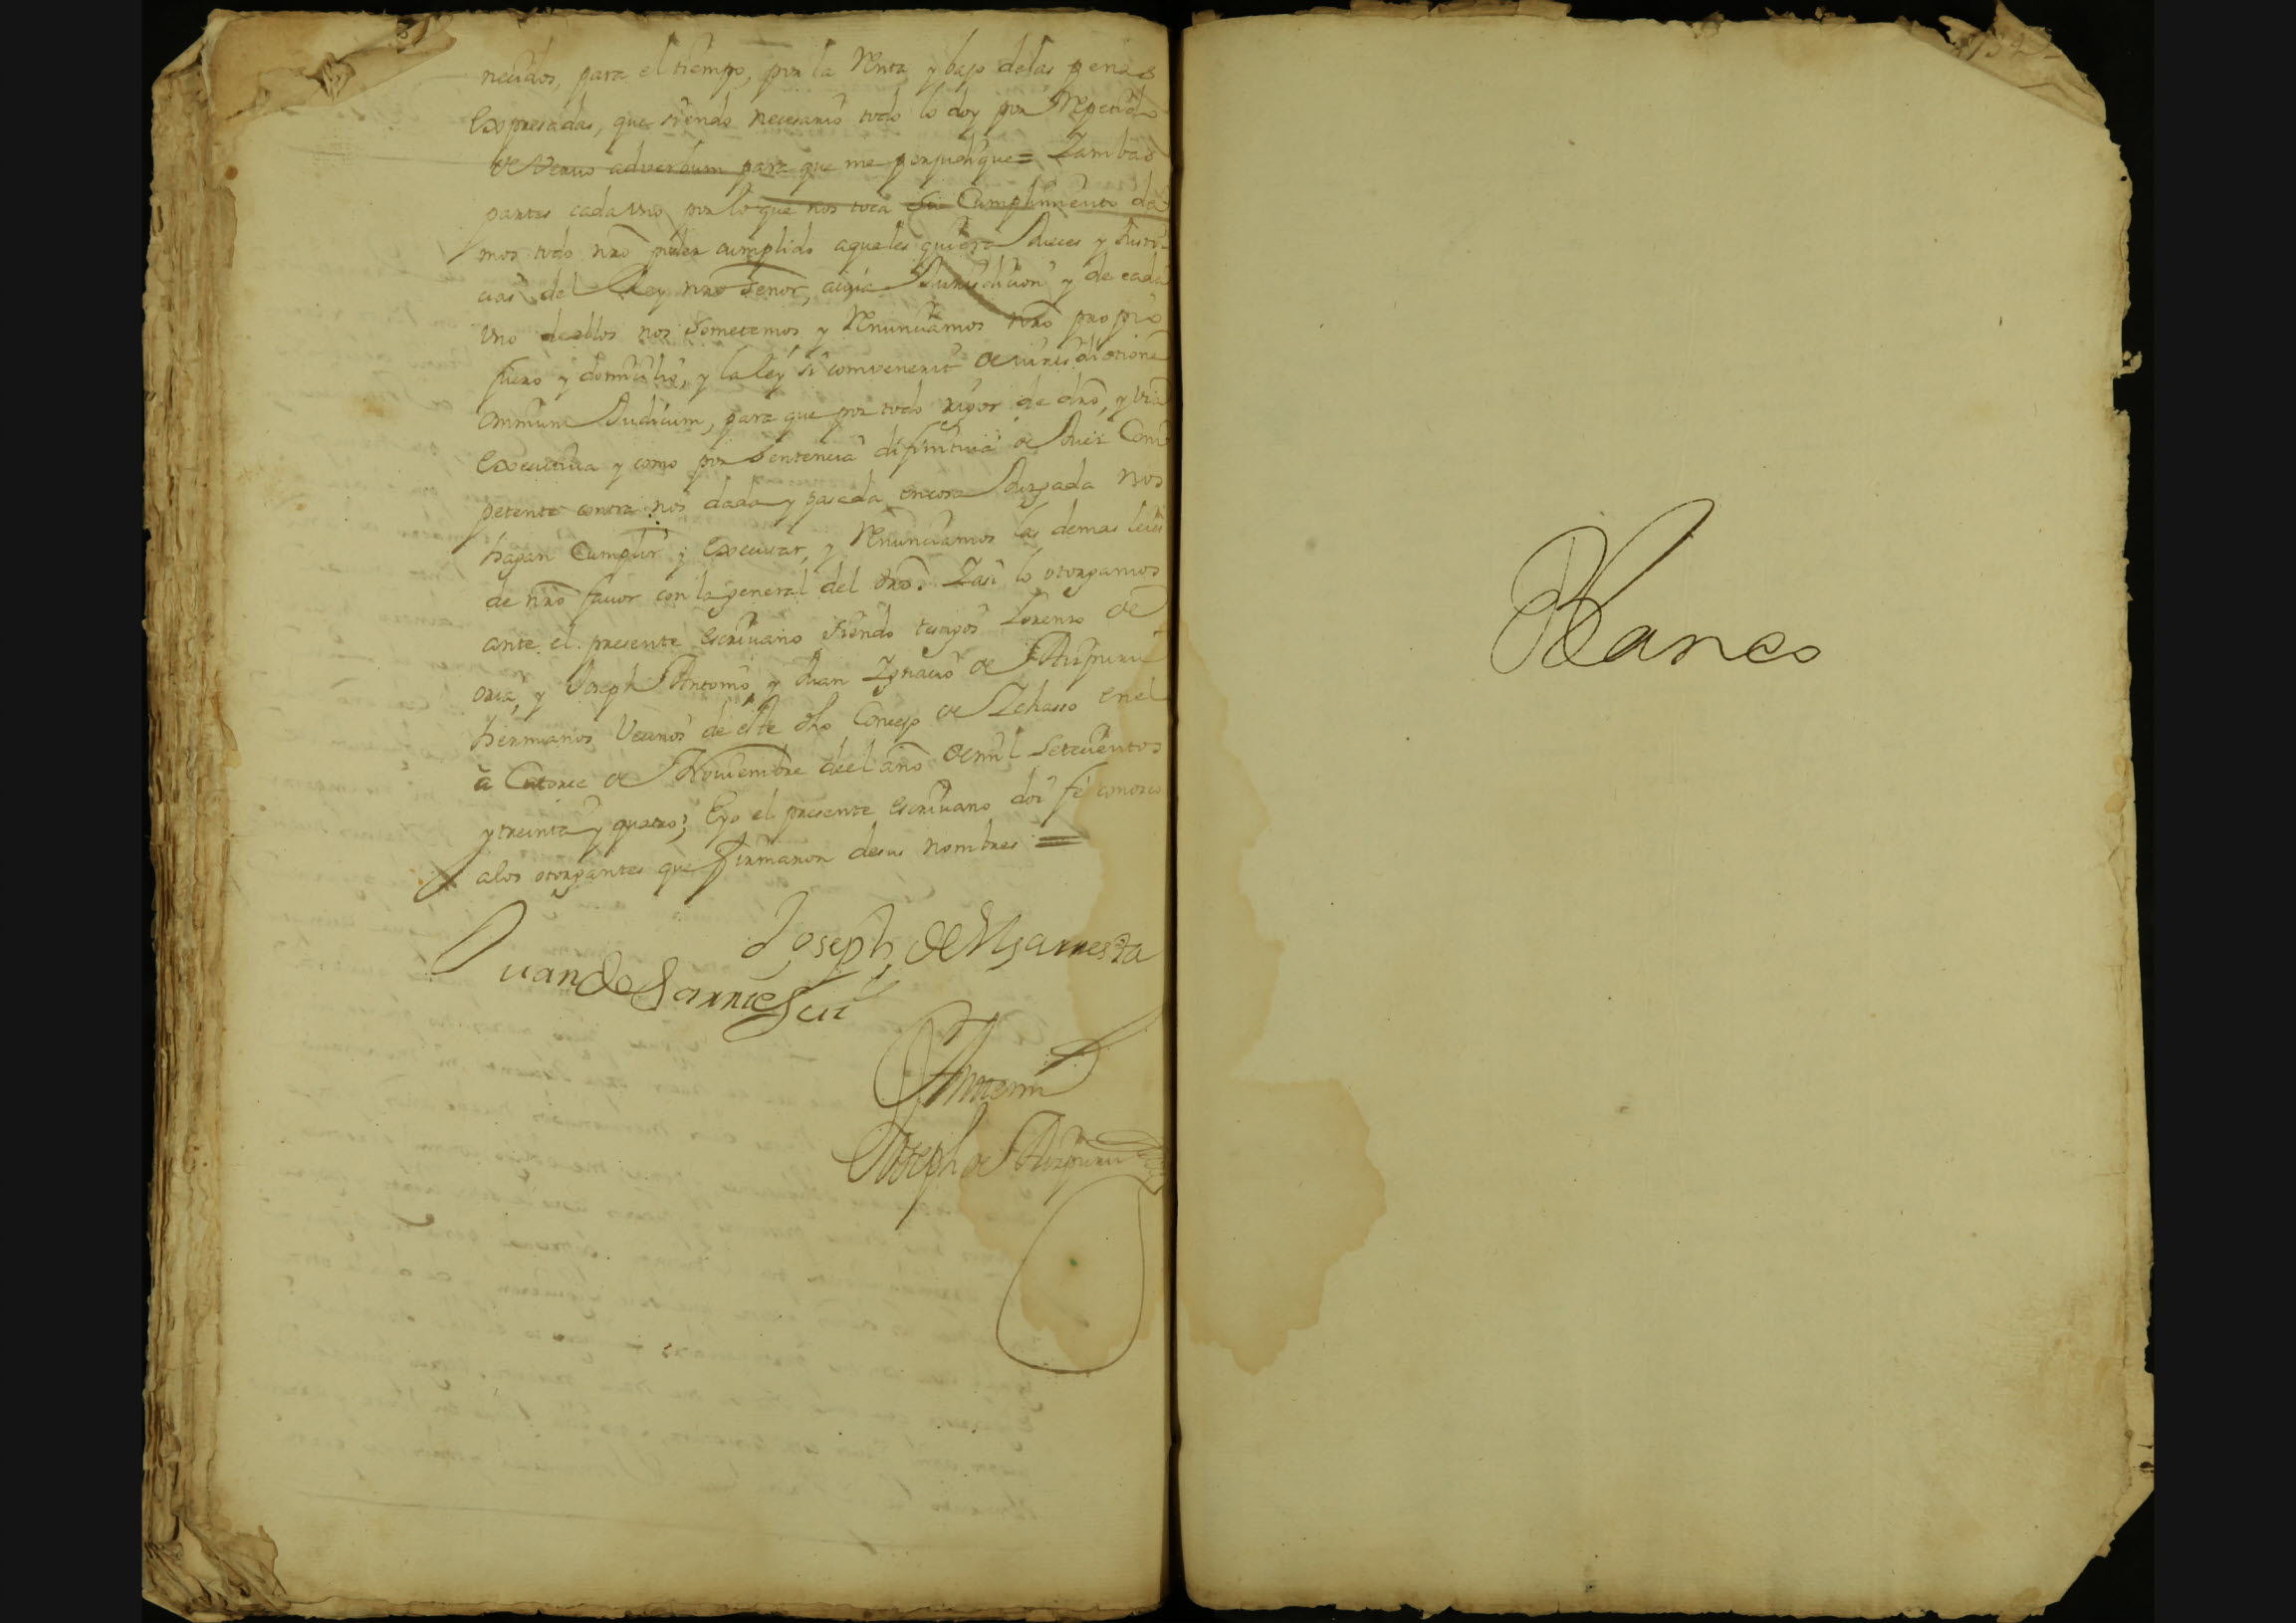 necidos, para el tiempo, por la Renta y bajo de las penas
Expresadas, que siendo necesario todo lo doy por Repetido
de Vervo adverbum para que me perjudique= Yambas
partes cada Uno por lo que nos toca su Cumplimiento da
mos todo nro poder cumplido aquales quiera Jueces y Justi
cias del Rey nro Señor, cuia Jurisdicion y de cada
Uno de ellos nos sometemos y Renunciamos nro propio
fuero y domicilio, y la ley si convenerit de jurisdictione
omnium Judicum, para que por todo rigor de dro, y via
Executiva y como por Sentencia difinitiva de Juez Com
petente contra nos dada y pasada en cosa Juzgada nos
hagan Cumplir y Executar, y Renunciamos las demas leies
de nro favor con la general del dro. Yasi lo otorgamos
ante el presente escrivano siendo testigos Lorenzo de
oria, y Joseph Antonio y Juan Ygnacio de Aizpuru
hermanos Vecinos de este dho Concejo de Ychasso en el
a Catorce de Noviembre de el año de mil Setecientos
y treinta y quatro; E yo el presente escrivano doi fe conozco
a los otorgantes que firmaron de sus nombres =
Joseph de
Juan de
Antemi
Joseph de Aizpuru
Blanco